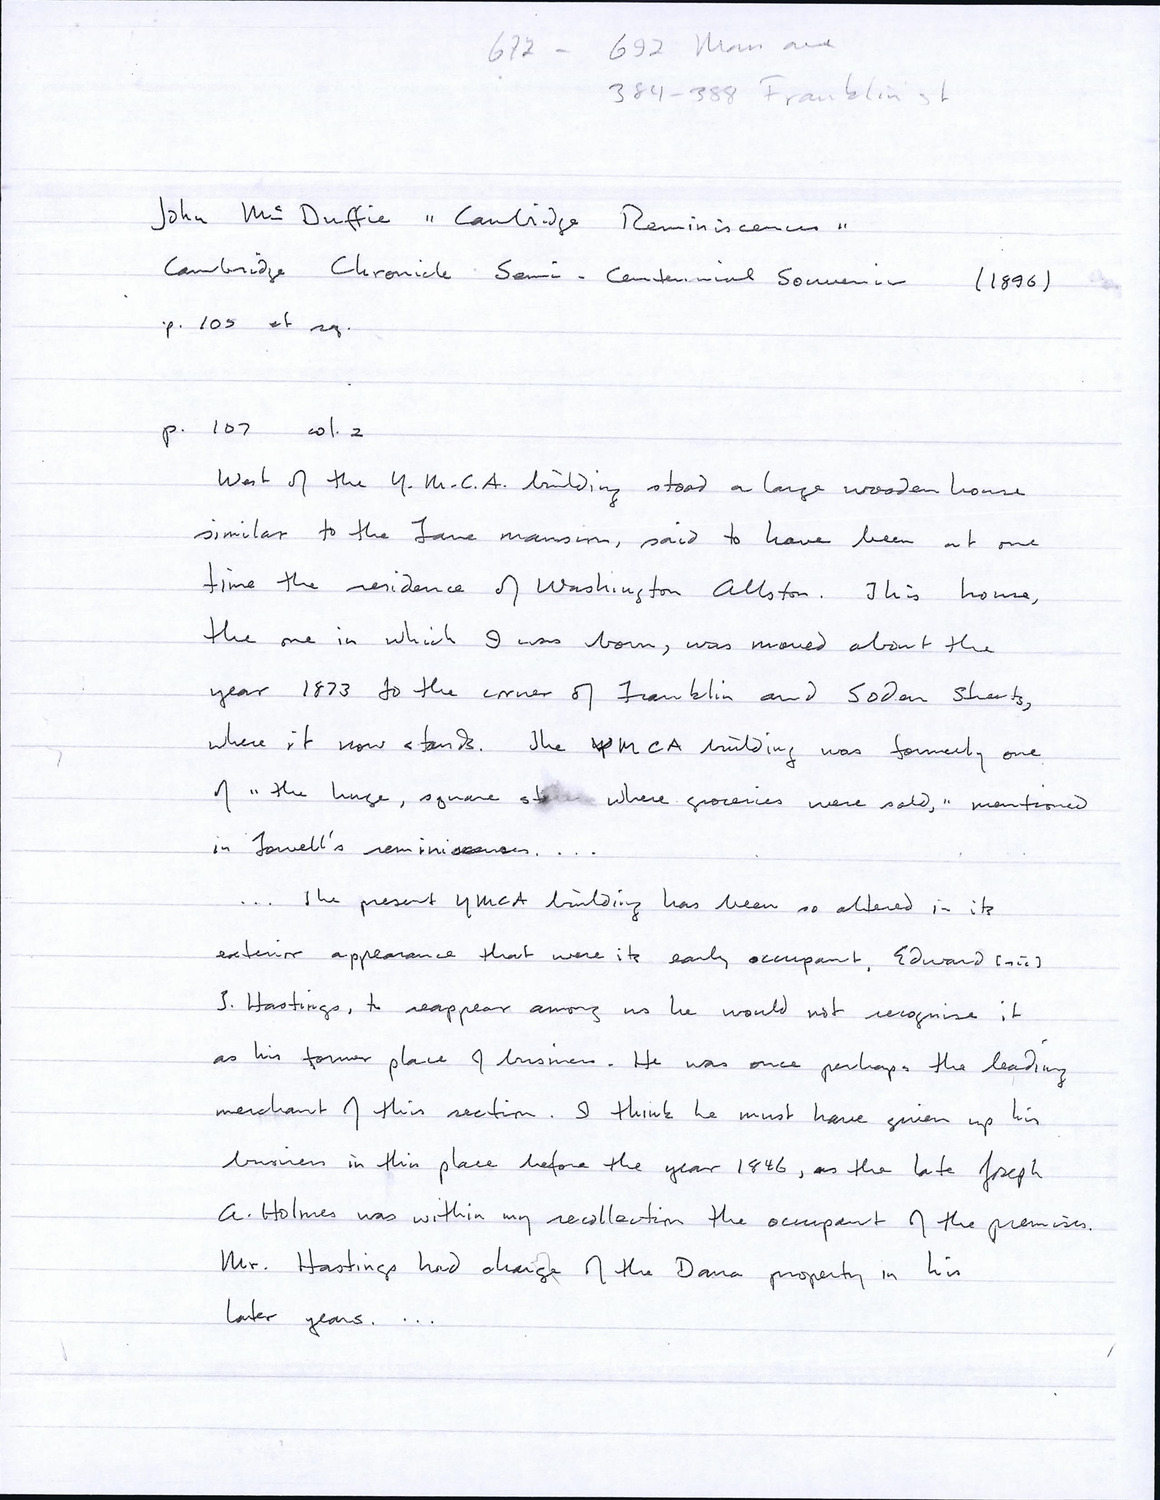 672 - 692 Mass ave
384-388 Franklin st
John Mc Duffie "Cambridge Reminiscences"
Cambridge Chronicle Semi-Centennial Souvenir (1896)
p. 105 et sq.
p. 107 col. 2
West of the Y.M.C.A. building stood a large wooden house
similar to the Fane mansion, said to have been at one
time the residence of Washington Allston. This house,
the one in which I was born, was moved about the
year 1873 to the corner of Franklin and Soden Streets,
where it now stands. The YMCA building was formerly one
of "the huge, square stores where groceries were sold," mentioned
in Lowell's reminiscences. ...
... The present YMCA building has been so altered in its
exterior appearance that were its early occupant, Edward [sic]
S. Hastings, to reappear among us he would not recognise it
as his former place of business. He was once perhaps the leading
merchant of this section. I think he must have given up his
business in this place before the year 1846, as the late Joseph
A. Holmes was within my recollection the occupant of the premises.
Mr. Hastings had charge of the Dana property in his
later years. ...